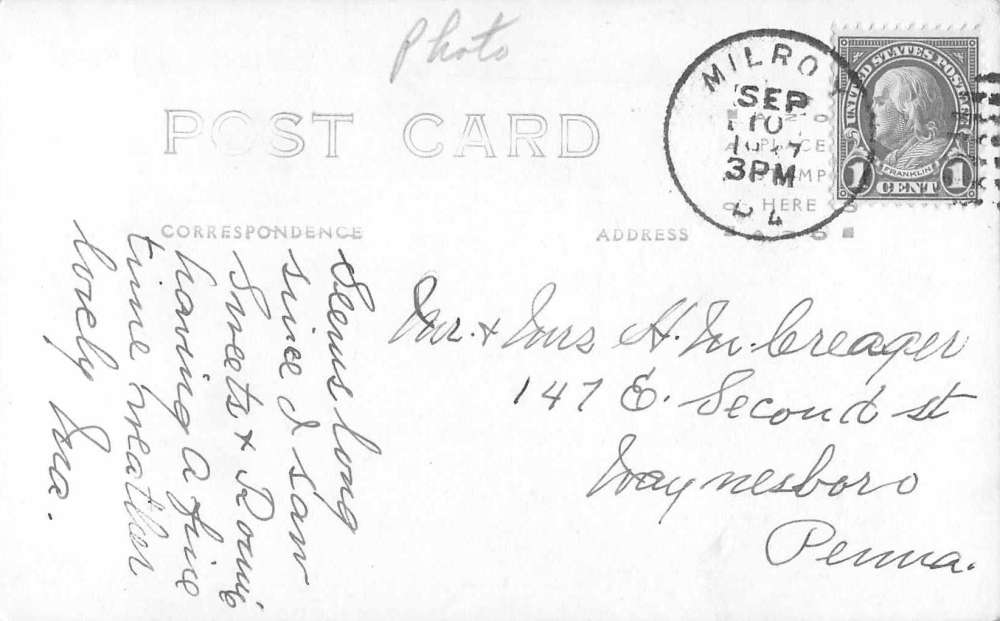 Photo
POST CARD
CORRESPONDENCE
ADDRESS
MILROY
SEP
10
3PM
PA
PLACE
STAMP
HERE
UNITED STATES POSTAGE
FRANKLIN
1 CENT 1
Seems long
since I saw
Sweets &
having a fine
time weather
lovely
Mr. & Mrs H. M. Creager
147 E. Second st
Waynesboro
Penna.